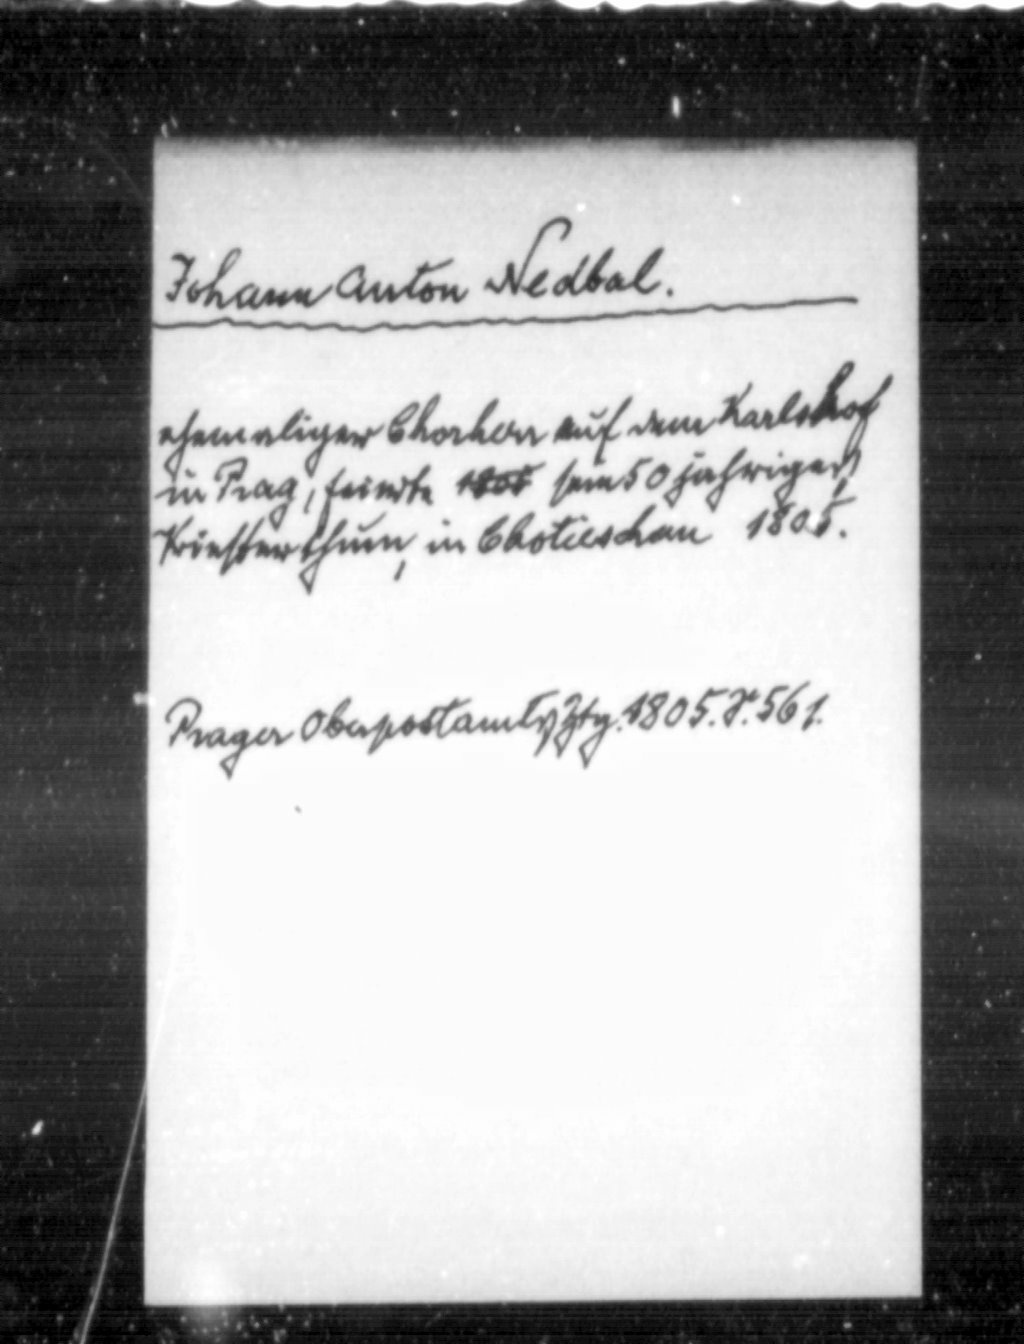 Johann Anton Nedbal.
ehemaliger Chorherr auf dem Karlshof
in Prag, feierte 1805 sein 50 jähriges
Priesterthum, in Chotieschau 1805.
Prager Oberpostamts Ztg. 1805. S. 561.